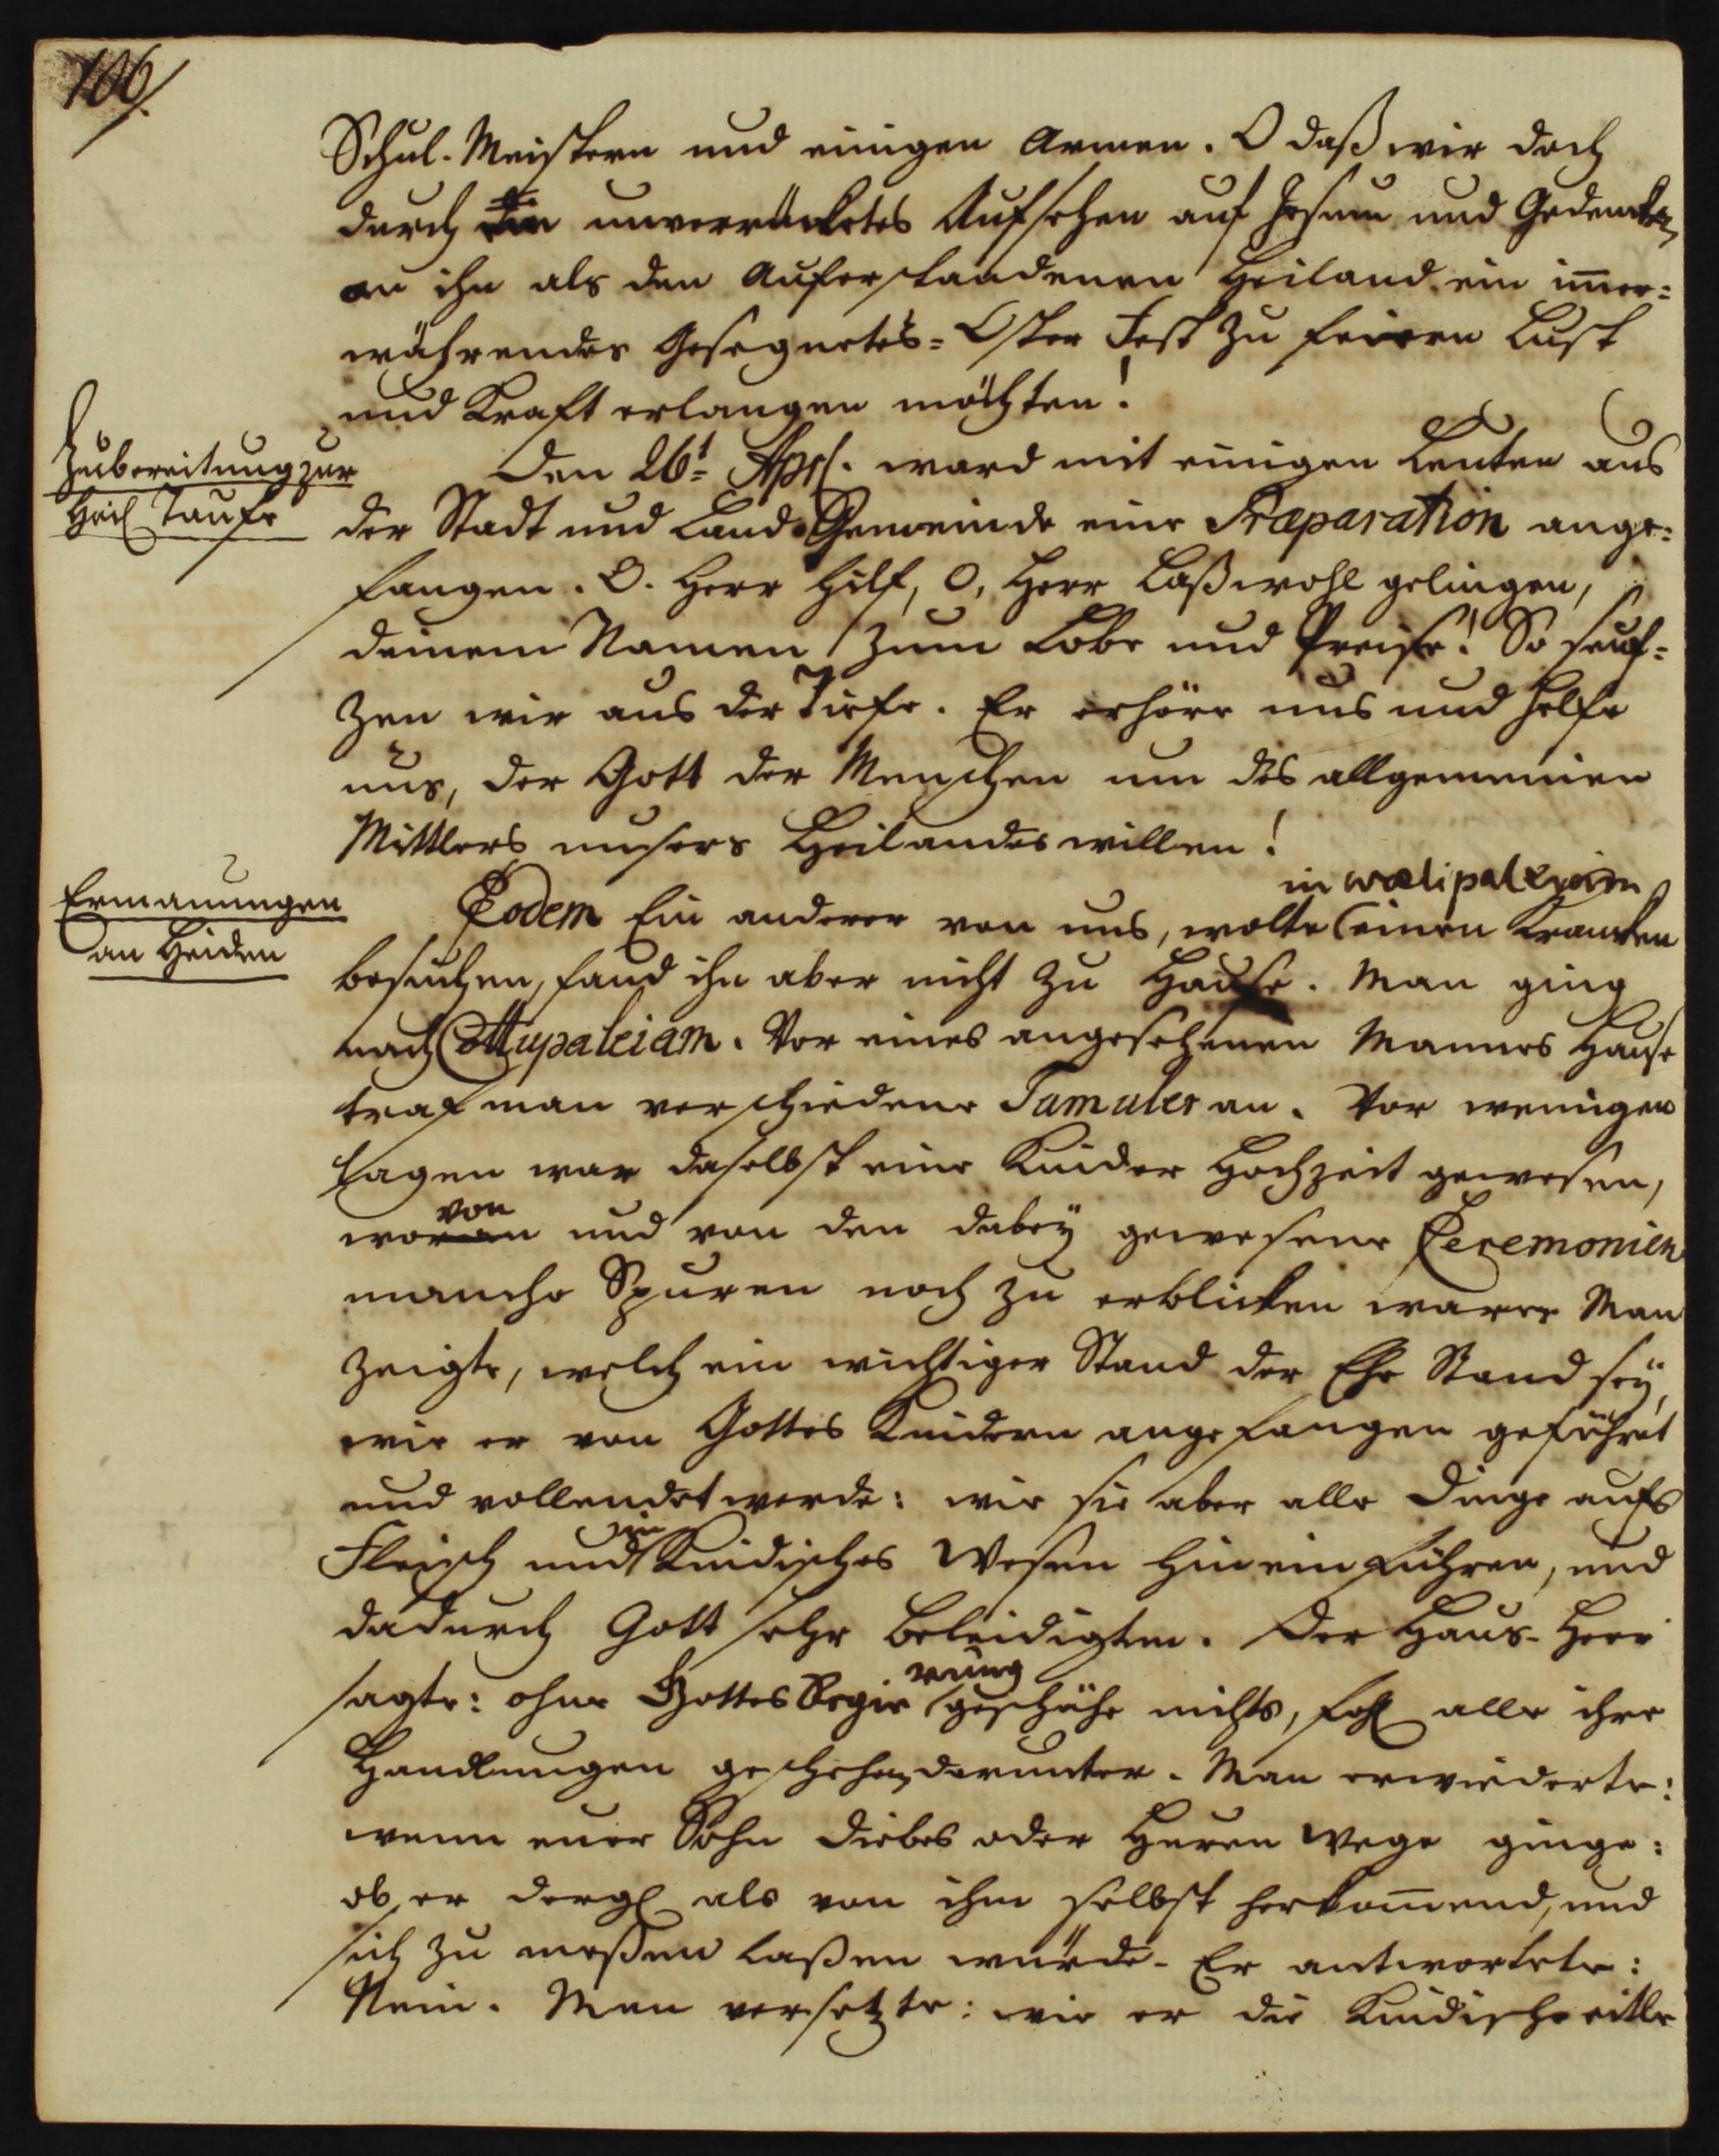 106.
Schul-Meistern und einigen Armen. O daß wir doch
durch ein unverrücktes Aufsehen auf Jesum und Gedencken
an ihn als den Auferstandenen Heiland ein im̄er=
währendes Gesegnetes=Oster Fest zu feiren Lust
und Kraft erlangen möchten!
Zubereitung zur
Heil Taufe
Den 26t Apr. ward mit einigen Leuten aus
der Stadt und Land-Gemeinde eine Præparation ange=
fangen. O. Herr Hilf, O, Herr Laß wohl gelingen,
deinem Namen zum Lobe und Preise! So seuf=
zen wir aus der Tiefe. Er erhöre uns und helfe
uns, der Gott der Menschen um des allgemeinen
Mittlers unsers Heilandes willen!
Ermanungen
an Heiden
in
Eodem Ein anderer von uns, wolte einen Krancken
besuchen, fand ihn aber nicht zu Hause. Man ging
nach Ottupaleiam. Vor eines angesehenen Mannes Hause
traf man verschiedene Tamuler an. Vor wenigen
Tagen war daselbst eine Kinder Hochzeit gewesen,
von
woran und von den dabey gewesene Ceremonien
manche Spuren noch zu erblicken waren Man
zeigte, welch ein wichtiger Stand der Ehe Stand sey,
wie er von Gottes Kindern angefangen geführet
und vollendet werde: wie sie aber alle Dinge aufs
in
Fleisch und Kindisches Wesen hinein führen, und
dadurch Gott sehr beleidigten. Der Haus-Herr
rung
sagte: ohne Gottes Regie geschähe nichts, folgl alle ihre
Handlungen geschehen darunter. Man erwiederte:
wenn euer Sohn Diebes oder Huren Wege ginge:
ob er dergl als von ihm selbst herkom̄end, und
sich zu meßen laßen würde. Er antwortete:
Nein. Man versetzte: wie er die Kindische eitle